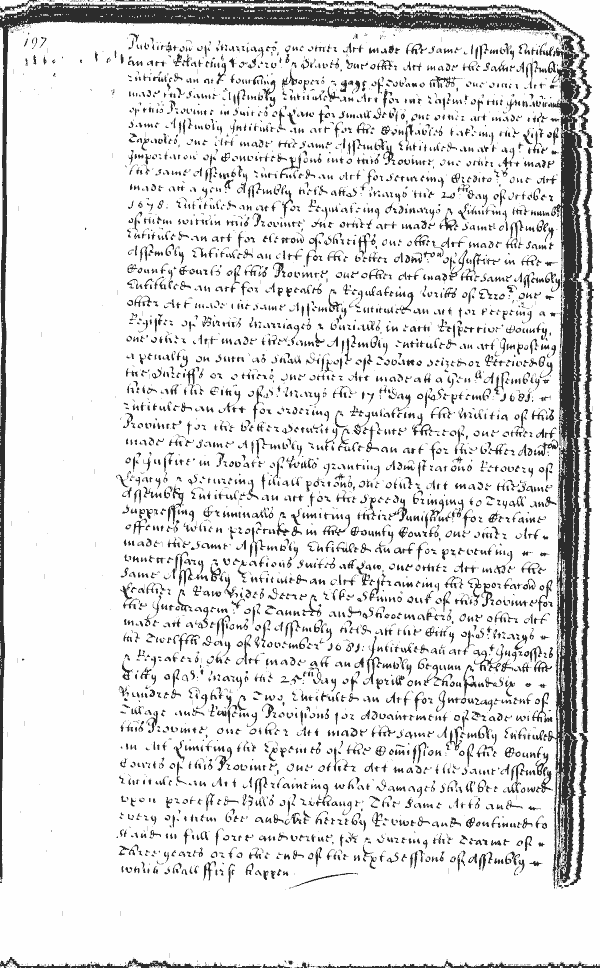 197
Publicacon of Marriages, one other Act made the Same Assembly Entituled
an act Relateing to Serv.ts & Slaves, one other Act made the Same Assembly
Entituled an act touching Coopers & gage of Tobacco hhds, one other Act
made the Same Assembly Entituled an Act for the of the Inhabitants
of this Province in Suites of Law for Small debts, one other act made the
Same Assembly Intituled an act for the Constables takeing the List of
Taxables, one Act made the Same Assembly Entituled an act ag.t the
Importacon of Convicted psons into this Province, one other Act made
the Same Assembly Entituled an Act for Secureing Creditors, one Act
made att a gen.ll Assembly held att S.t Marys the 20.th day of October
1678. Entituled an act for Regulateing Ordinarys & Limiting the numb.r
of them within this Province, One other act made the Same Assembly
Entituled an act for eleccon of Shreiffs, one other Act made the Same
Assembly Entituled an Act for the better Adm of Justice in the
County Courts of this Province, one other Act made the Same Assembly
Entituled an act for Appeales & Regulateing Writts of Erro.r, one
other Act made the Same Assembly Entituled an act for keeping a
Register of Births Marriages & Burialls, in each Respective County,
one other Act made the Same Assembly entituled an act Imposing
a penalty on Such as Shall dispose of Tobacco Seized or Received by
the Shreiffs or others, one other Act made att a Gen.ll Assembly
held att the Citty of S.t Marys the 17.th Day of Septemb.r 1681.
Entituled an Act for ordering & Regulateing the Militia of this
Province for the better Security & defence thereof, one other Act
made the Same Assembly Entituled an act for the better Adm
of Justice in Probate of Wills granting Admistracons Recovery of
Legacys & Secureing filiall porcons, one other Act made the Same
Assembly Entituled an act for the Speedy bringing to Tryall and
Suppressing Criminalls & Limiting theire Punishm.ts for Certaine
offences when prosecuted in the County Courts, one other Act
made the Same Assembly Entituled an act for preventing
unnecessary & vexations Suites att Law, one other Act made the
Same Assembly Entituled an Act Restraineing the Exportacon of
Leather & Raw Hides Deere & Elke Skinns out of this Province for
the Incouragem.t of Tanners and Shooemakers, one other Act
made att a Sessions of Assembly held att the Citty of S.t Marys
the Twelfth day of November 1681. Intituled an act ag.t Ingrossers
& Regraters, One Act made att an Assembly begunn & held att the
Citty of S.t Marys the 25.th Day of Aprill one Thousand Six
Hundred Eighty & Two, Entituled an Act for Incouragement of
Tillage and Raiseing Provisions for Advancement of Trade within
this Province, one other Act made the Same Assembly Entituled
an Act Limiting the Expences of the Comission.rs of the County
Courts of this Province, one other Act made the Same Assembly
Entituled an Act Assertaineing what Damages shall bee allowed
upon protested Bills of exchange, The Same Acts and
every of them bee and Are hereby Revived and Continued to
Stand in full force and vertue, for & dureing the Tearme of
Three yeares or to the end of the next Sessions of Assembly
which shall ffirst happen